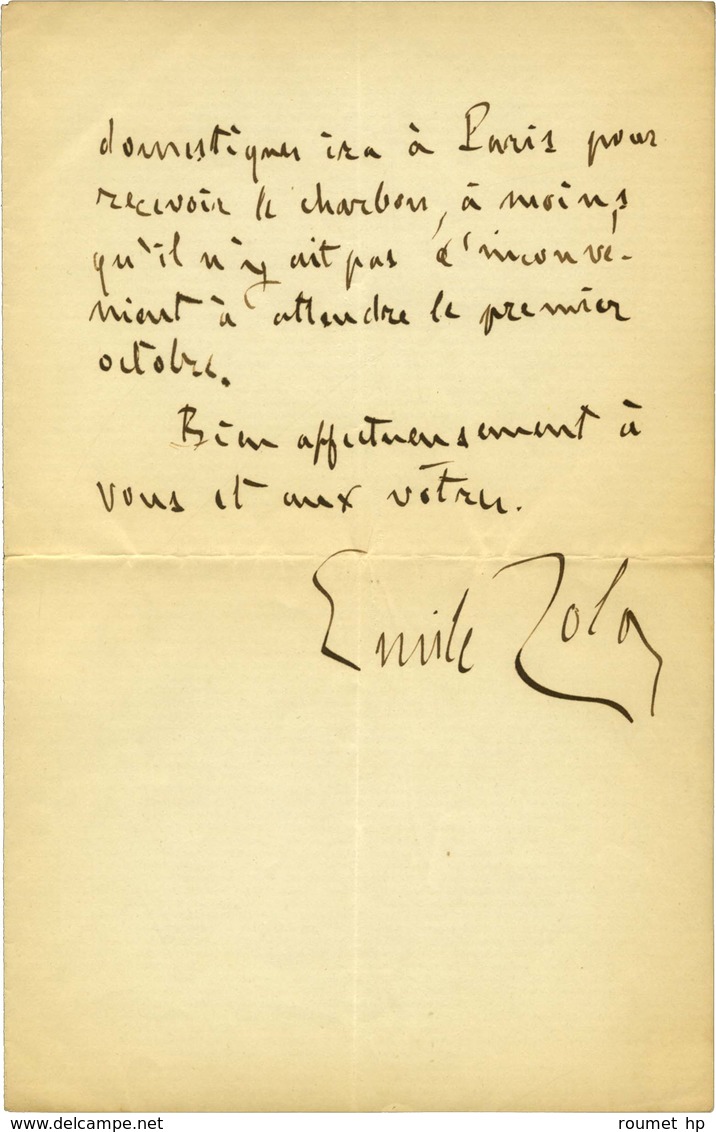 domestiques ira à Paris pour
recevoir le charbon, à moins
qu'il n'y ait pas d'inconvé-
nient à attendre le premier
octobre.
Bien affectueusement à
vous et aux vôtres.
Emile Zola
www.delcampe.net
roumet hp